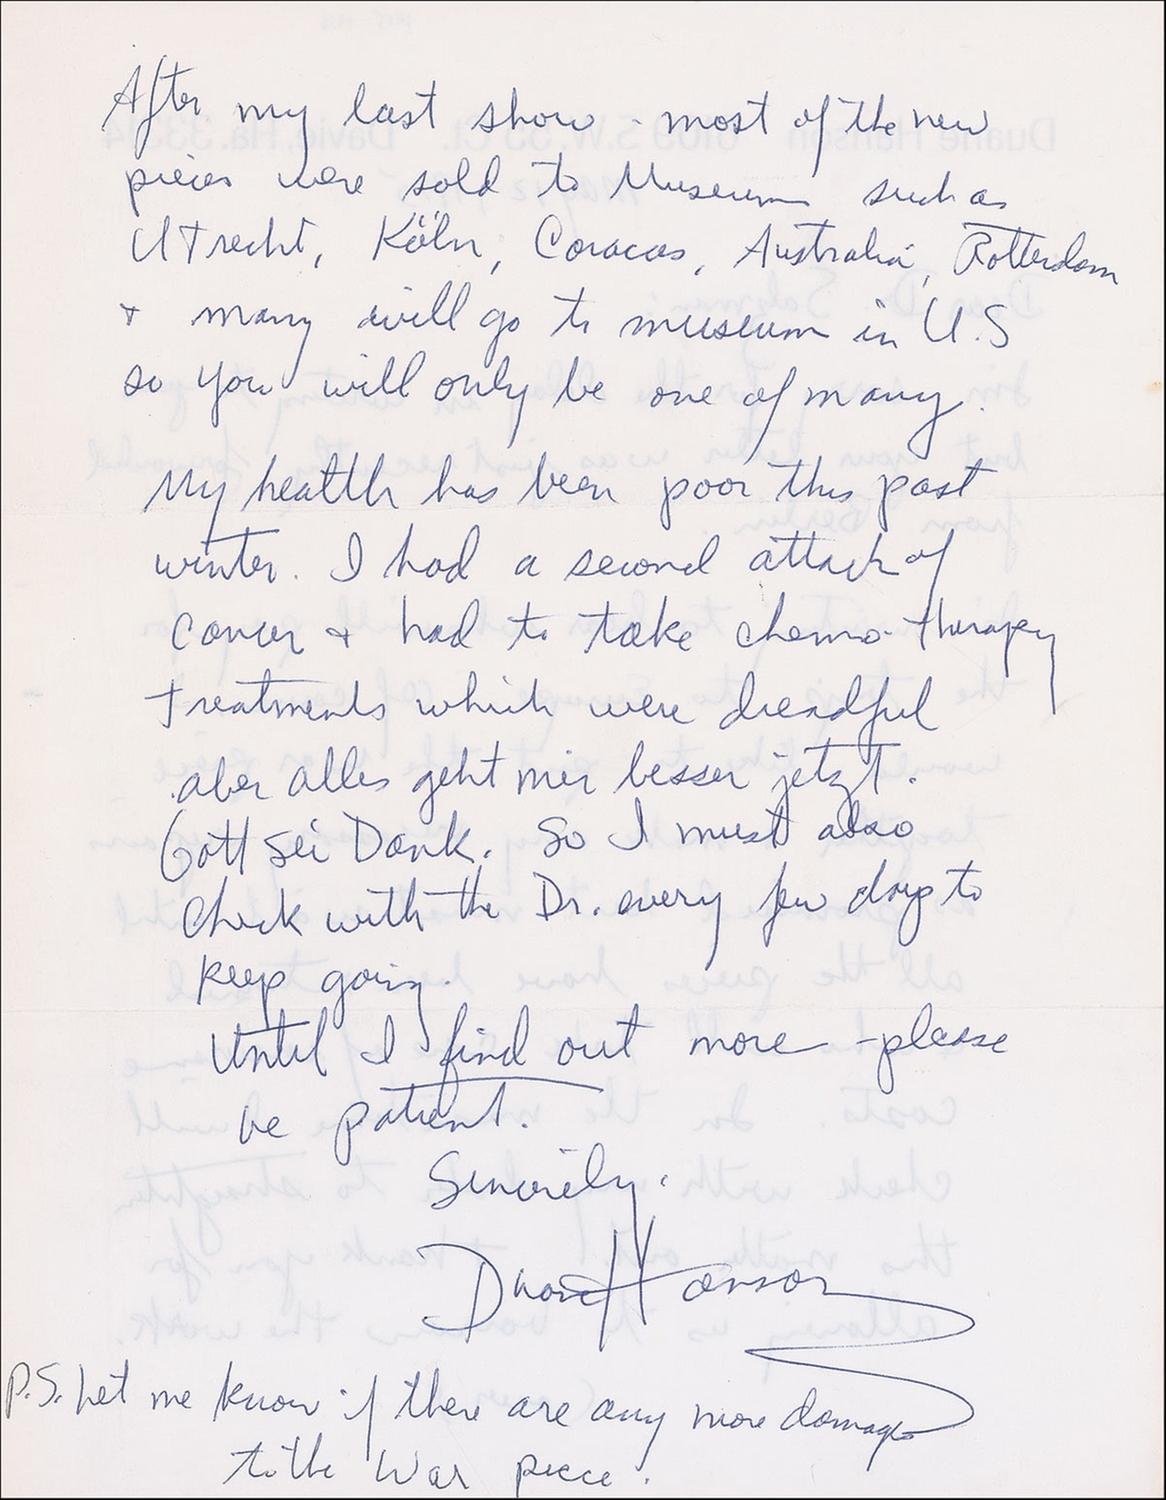 After my last show - most of the new
pieces were sold to Museums such as
Utrecht, Köln, Caracas, Australia, Rotterdam
+ many will go to museum in U.S
so you will only be one of many.
My health has been poor this past
winter. I had a second attack of
Cancer + had to take chemo-therapy
treatments which were dreadful
aber alles geht mir besser jetzt.
Gott sei Dank. So I must also
check with the Dr. every few days to
keep going.
Until I find out more - please
be patient.
Sincerely,
Duane Hanson
P.S. Let me know if there are any more damages
to the War piece.